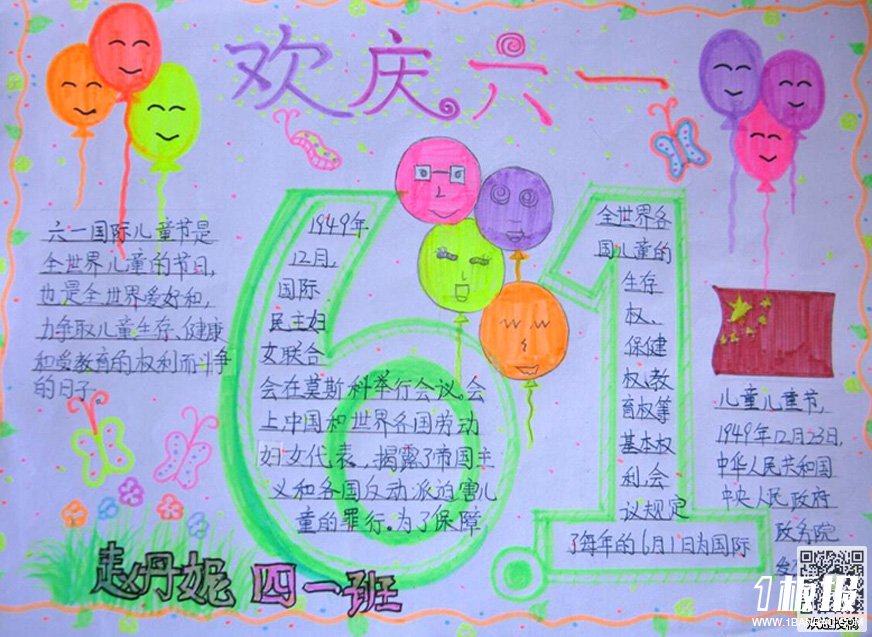 欢庆六一
六一国际儿童节是
全世界儿童的节日,
也是全世界爱好和,
力争取儿童生存、健康
和受教育的权利而斗争
的日子
1949年
12月,
国际
民主妇
女联合
会在莫斯科举行会议,会
上,中国和世界各国劳动
妇女代表,揭露了帝国主
义和各国反动派迫害儿
童的罪行。为了保障
全世界各
国儿童的
生存
权、
保健
权、教
育权等
基本权
利,会
议规定
了每年的6月1日为国际
儿童儿童节,
1949年12月23日,
中华人民共和国
中央人民政府
政务院
赵丹妮 四一班
1板报
WWW.1BANBAO.COM